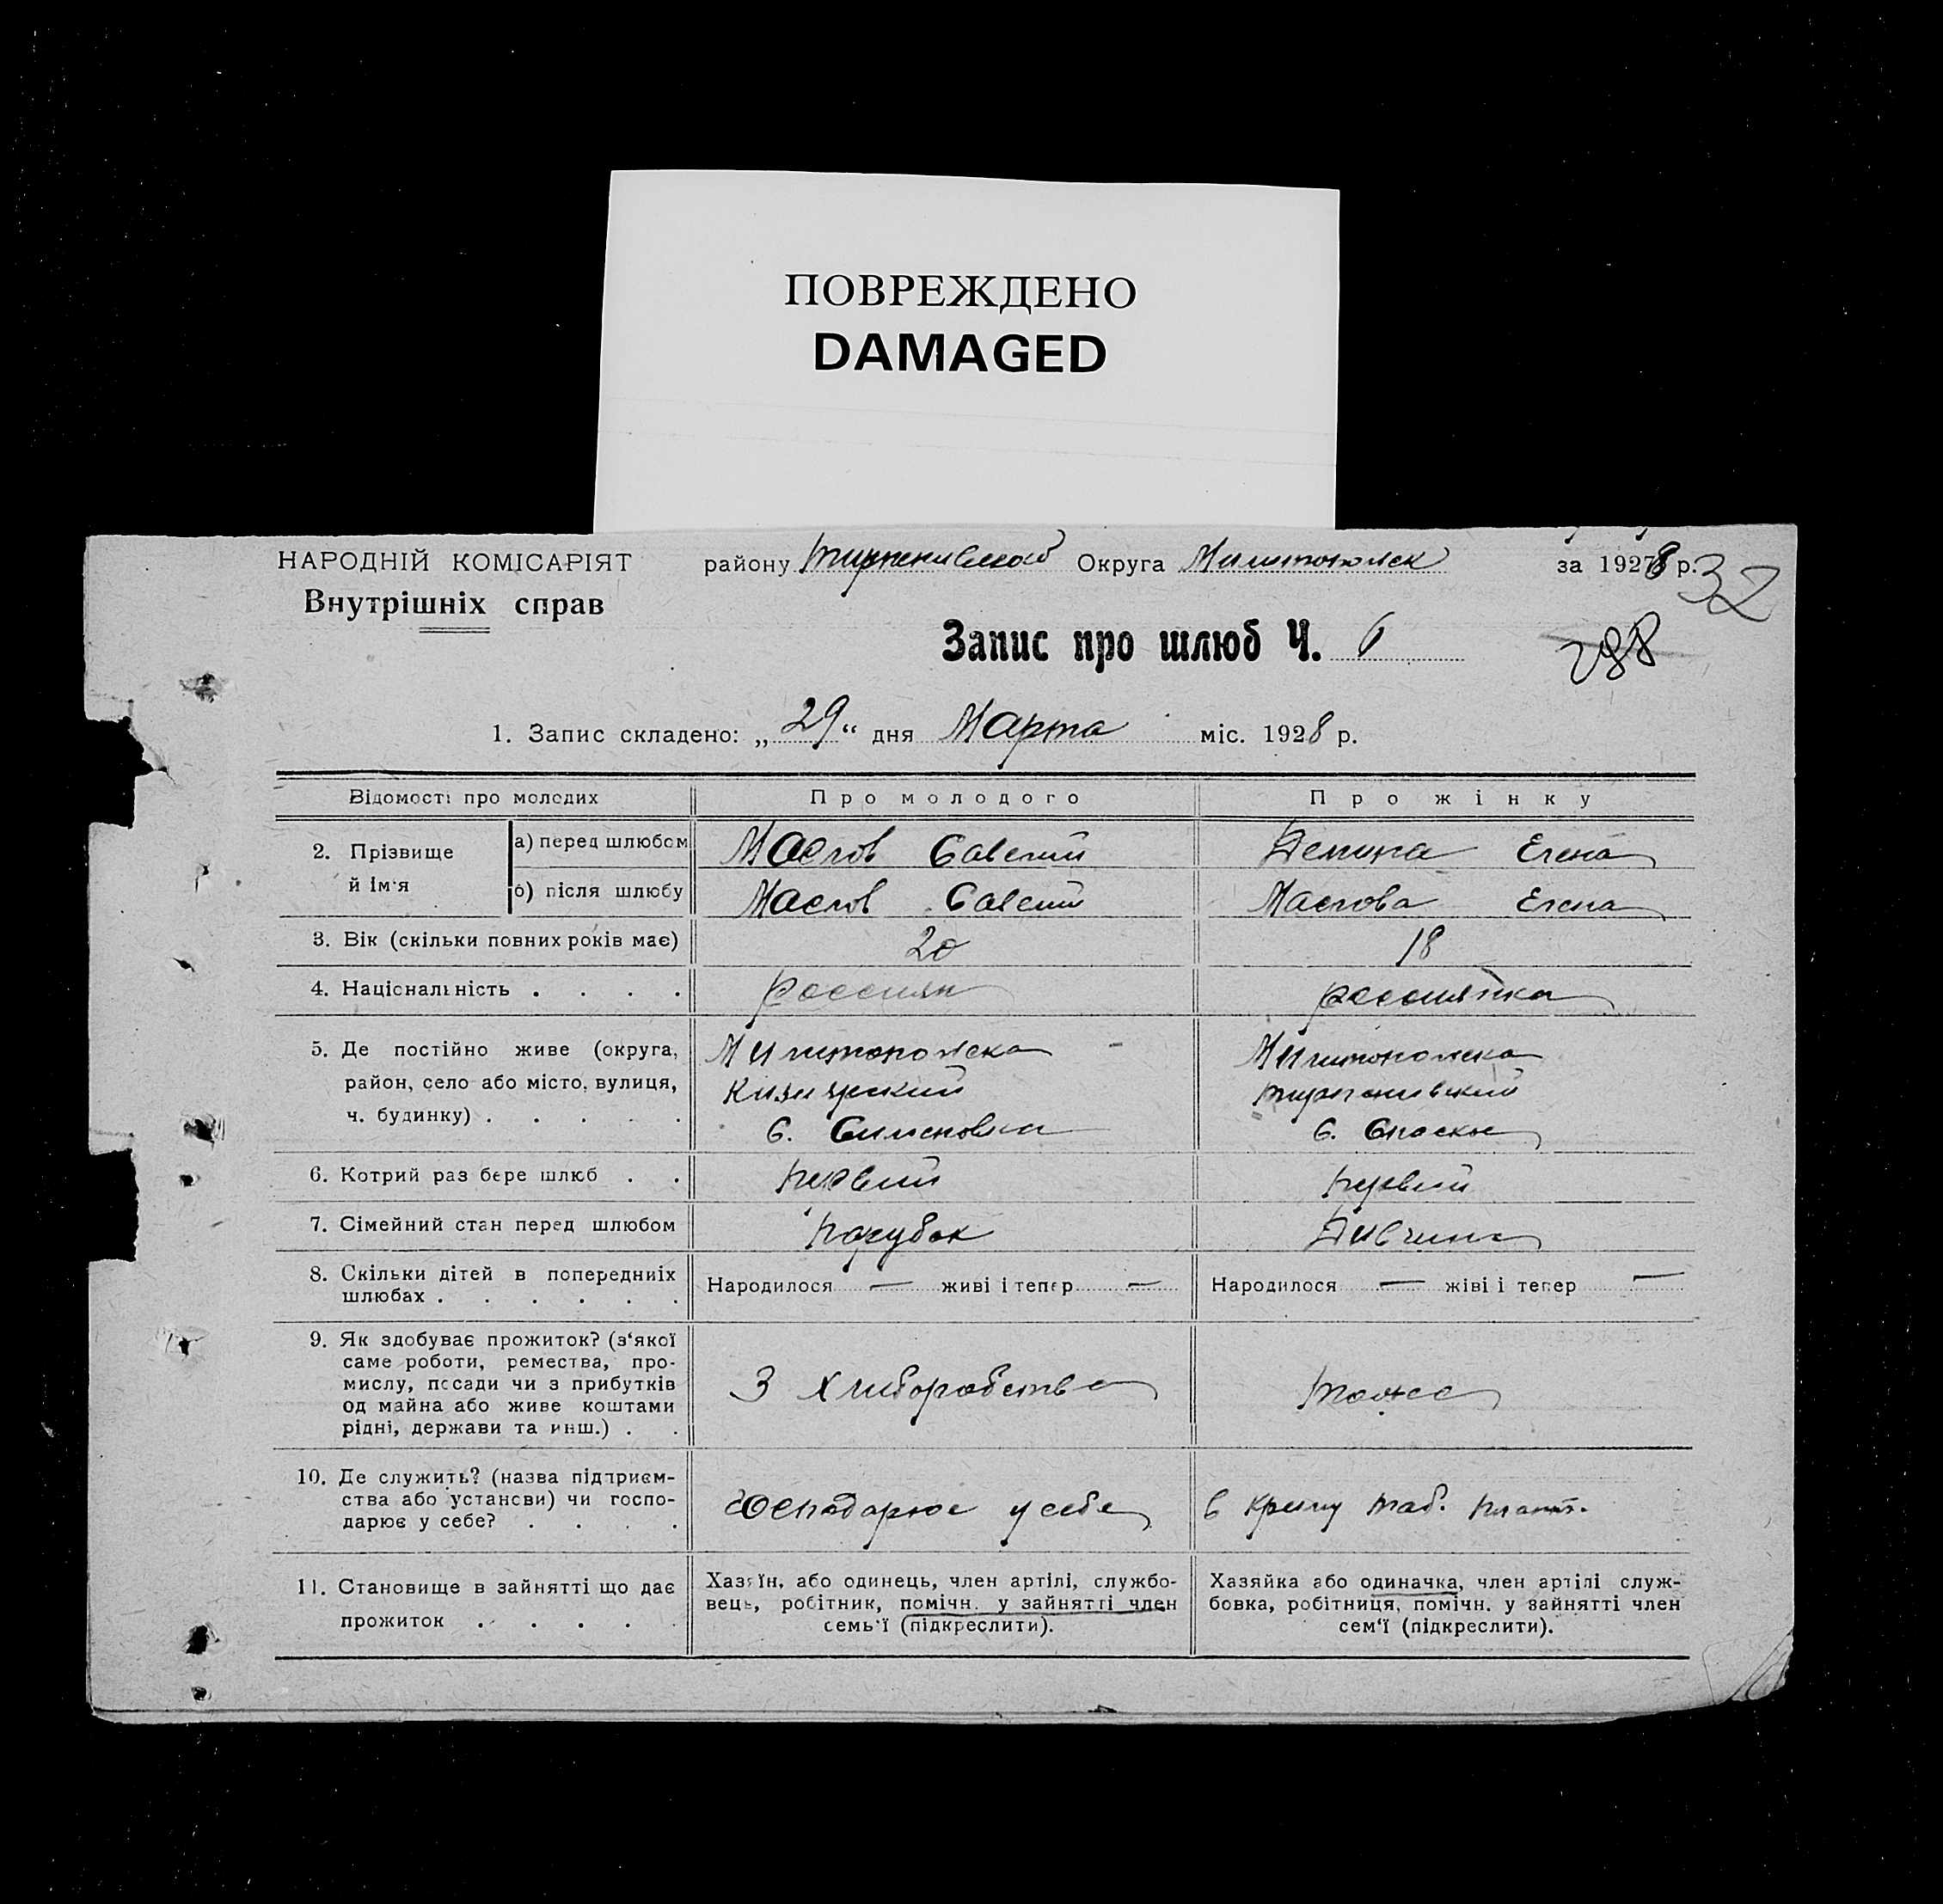 ПОВРЕЖДЕНО
DAMAGED
НАРОДНІЙ КОМІСАРІЯТ
Внутрішніх справ
району Округа Милитопольск за 1928 р.
32
288
Запис про шлюб Ч. 6
1. Запис складено: „29“ дня Марта міс. 1928 р.
Відомості про молодих Про молодого Про жінку
2. Прізвище й ім'я
а) перед шлюбом Маслов Савелий Демина Елена
б) після шлюбу Маслов Савелий Маслова Елена
3. Вік (скільки повних років має) 20 18
4. Національність . . . . Россиян россиянка
5. Де постійно живе (округа, Милитопольска Милитопольска
район, село або місто, вулиця, Кизиярский тирпенивский
ч. будинку) . . . . . с. Симоновка с. Спаское
6. Котрий раз бере шлюб . . первий первий
7. Сімейний стан перед шлюбом парубок Дивчина
8. Скільки дітей в попередниіх шлюбах . . . . . . Народилося — живі і тепер — Народилося — жіві і тепер —
9. Як здобуває прожиток? (з'якої
саме роботи, ремества, про-
мислу, посади чи з прибутків
од майна або живе коштами З хлиборобства тоже
рідні, держави та инш.) . .
10. Де служить? (назва підприєм-
ства або установи) чи госпо- Господарює у себе в Криму таб. плант.
дарює у себе? . . . .
11. Становище в зайнятті що дає прожиток . . . . .
Хазяїн, або одинець, член артілі, службо-
вець, робітник, помічн. у зайнятті член
семь'ї (підкреслити).
Хазяйка або одиначка, член артілі служ-
бовка, робітниця, помічн. у зайнятті член
сем'ї (підкреслити).